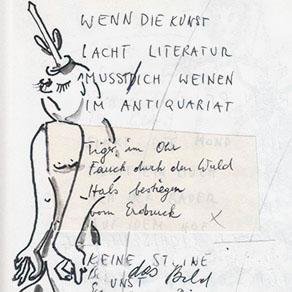 WENN DIE KUNST
LACHT LITERATUR
MUSST DICH WEINEN
IM ANTIQUARIAT
Tiger im Ohr
Fauch durch den Wald
Hals bestiegen
vom Erdruck
X
MOND
KEINE
das Bild